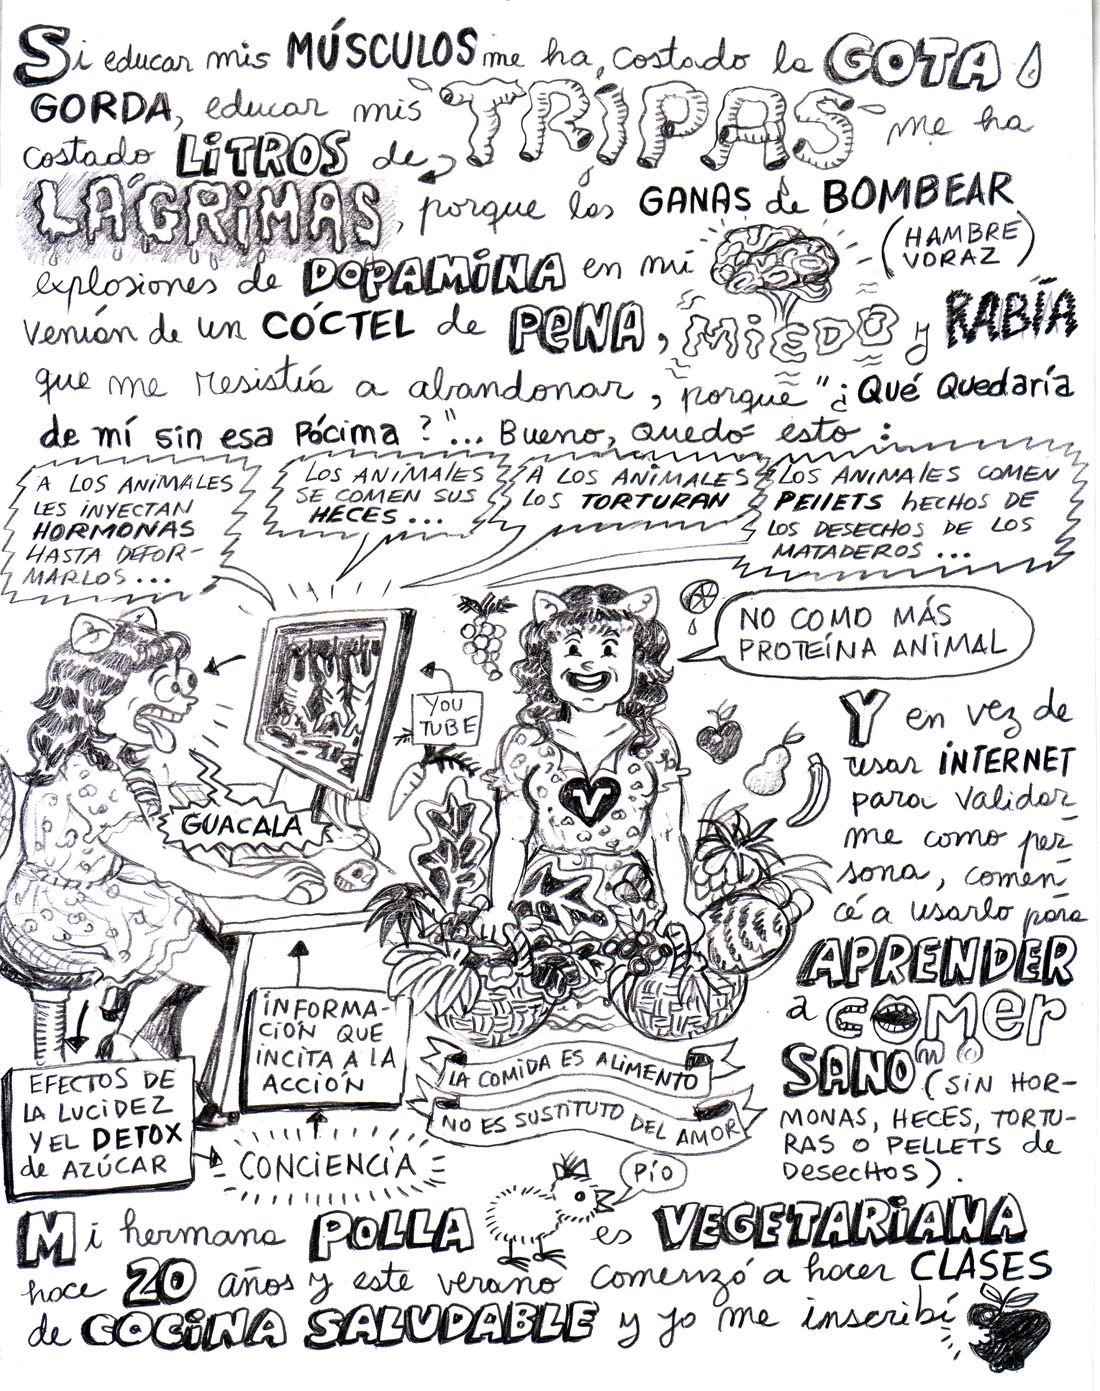 Si educar mis MÚSCULOS me ha costado la GOTA
GORDA, educar mis TRIPAS me ha
costado LiTROS de
LÁGRIMAS, porque las GANAS de BOMBEAR
(HAMBRE
VORAZ)
explosiones de DOPAMiNA en mi
venían de un CÓCTEL de PeNA, MiEDO y RABÍA
que me resistía a abandonar, porque "¿Qué Quedaría
de mí sin esa Pócima?"... Bueno, quedó esto:
A LOS ANiMALES
LES iNYECTAN
HORMONAS
HASTA DEFOR-
MARLOS...
LOS ANiMALES
SE COMEN SUS
HECES...
A LOS ANiMALES
LOS TORTURAN
LOS ANiMALES COMEN
PELLETS HECHOS DE
LOS DESECHOS DE LOS
MATADEROS...
NO COMO MÁS
PROTEÍNA ANiMAL
YOU
TUBE
GUACALA
V
Y en vez de
usar iNTERNET
para validar
me como per
sona, comen
cé a usarlo para
APRENDER
a COMer
SANO (SiN HOR-
MONAS, HECES, TORTU-
RAS O PELLETS de
DESECHOS).
iNFORMA-
CiÓN QUE
iNCiTA A LA
ACCiÓN
EFECTOS DE
LA LUCiDEZ
Y EL DETOX
de AZÚCAR
CONCiENCiA
LA COMiDA ES ALiMENTO
NO ES SUSTiTUTO DEL AMOR
PÍO
Mi hermana POLLA es VEGETARiANA
hace 20 años y este verano comenzó a hacer CLASES
de COCiNA SALUDABLE y yo me inscribí